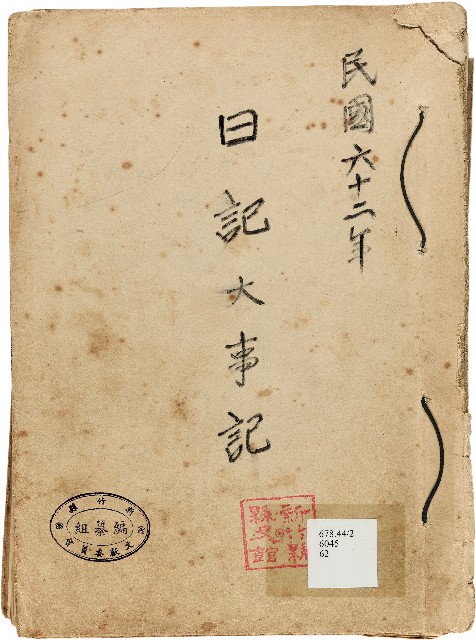 民國六十二年
日記大事記
新竹縣文獻委員會
編纂組
新竹縣
縣史館
678.44/2
6045
62